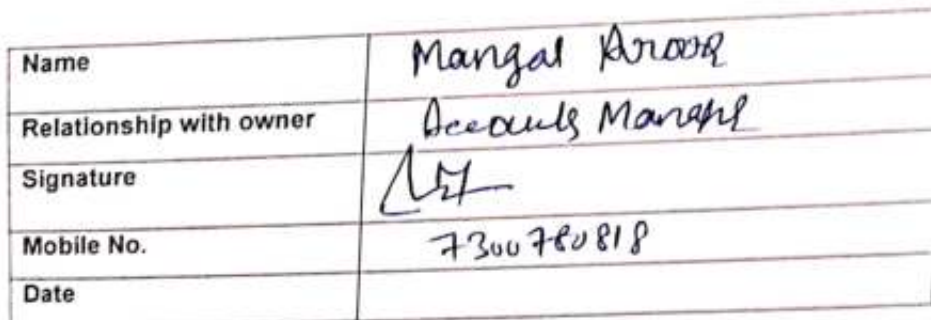 Name Mangal Arora
Relationship with owner Accounts Manager
Signature
Mobile No. 7300780818
Date